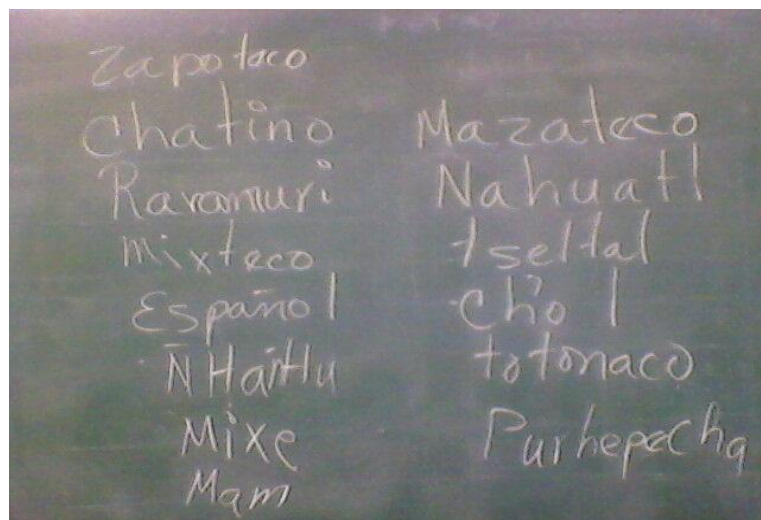 Zapoteco
Chatino
Raramuri
Mixteco
Español
Ñ HañHu
Mixe
Mam
Mazateco
Nahuatl
tseltal
Ch'ol
totonaco
Purhepecha